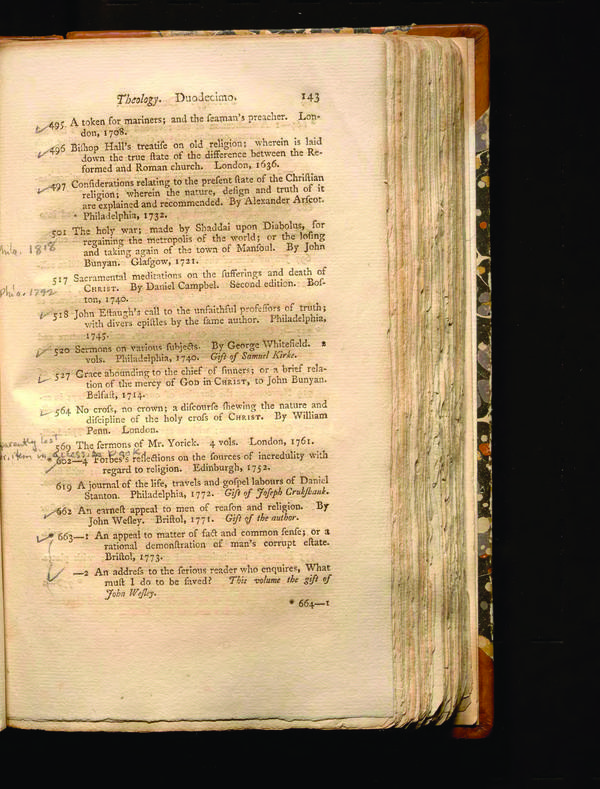 Theology. Duodecimo. 143
495 A token for mariners; and the ſeaman's preacher. Lon-
don, 1708.
496 Biſhop Hall's treatiſe on old religion; wherein is laid
down the true ſtate of the difference between the Re-
formed and Roman church. London, 1636.
497 Conſiderations relating to the preſent ſtate of the Chriſtian
religion; wherein the nature, deſign and truth of it
are explained and recommended. By Alexander Arſcot.
Philadelphia, 1732.
501 The holy war; made by Shaddai upon Diabolus, for
regaining the metropolis of the world; or the loſing
and taking again of the town of Manſoul. By John
Bunyan. Glaſgow, 1721.
Phila. 1818
517 Sacramental meditations on the ſufferings and death of
CHRIST. By Daniel Campbel. Second edition. Boſ-
ton, 1740.
Phila. 1792
518 John Eſtaugh's call to the unfaithful profeſſors of truth;
with divers epiſtles by the ſame author. Philadelphia,
1745.
520 Sermons on various ſubjects. By George Whitefield. 2
vols. Philadelphia, 1740. Gift of Samuel Kirke.
527 Grace abounding to the chief of ſinners; or a brief rela-
tion of the mercy of GOD in CHRIST, to John Bunyan.
Belfaſt, 1714.
564 No croſs, no crown; a diſcourſe ſhewing the nature and
diſcipline of the holy croſs of CHRIST. By William
Penn. London.
569 The ſermons of Mr. Yorick. 4 vols. London, 1761.
parently lost
item in accession book
602—4 Forbes's reflections on the ſources of incredulity with
regard to religion. Edinburgh, 1752.
619 A journal of the life, travels and goſpel labours of Daniel
Stanton. Philadelphia, 1772. Gift of Joſeph Crukſhank.
662 An earneſt appeal to men of reaſon and religion. By
John Weſley. Briſtol, 1771. Gift of the author.
* 663—1 An appeal to matter of fact and common ſenſe; or a
rational demonſtration of man's corrupt eſtate.
Briſtol, 1773.
—2 An addreſs to the ſerious reader who enquires, What
muſt I do to be ſaved? This volume the gift of
John Weſley.
* 664—1